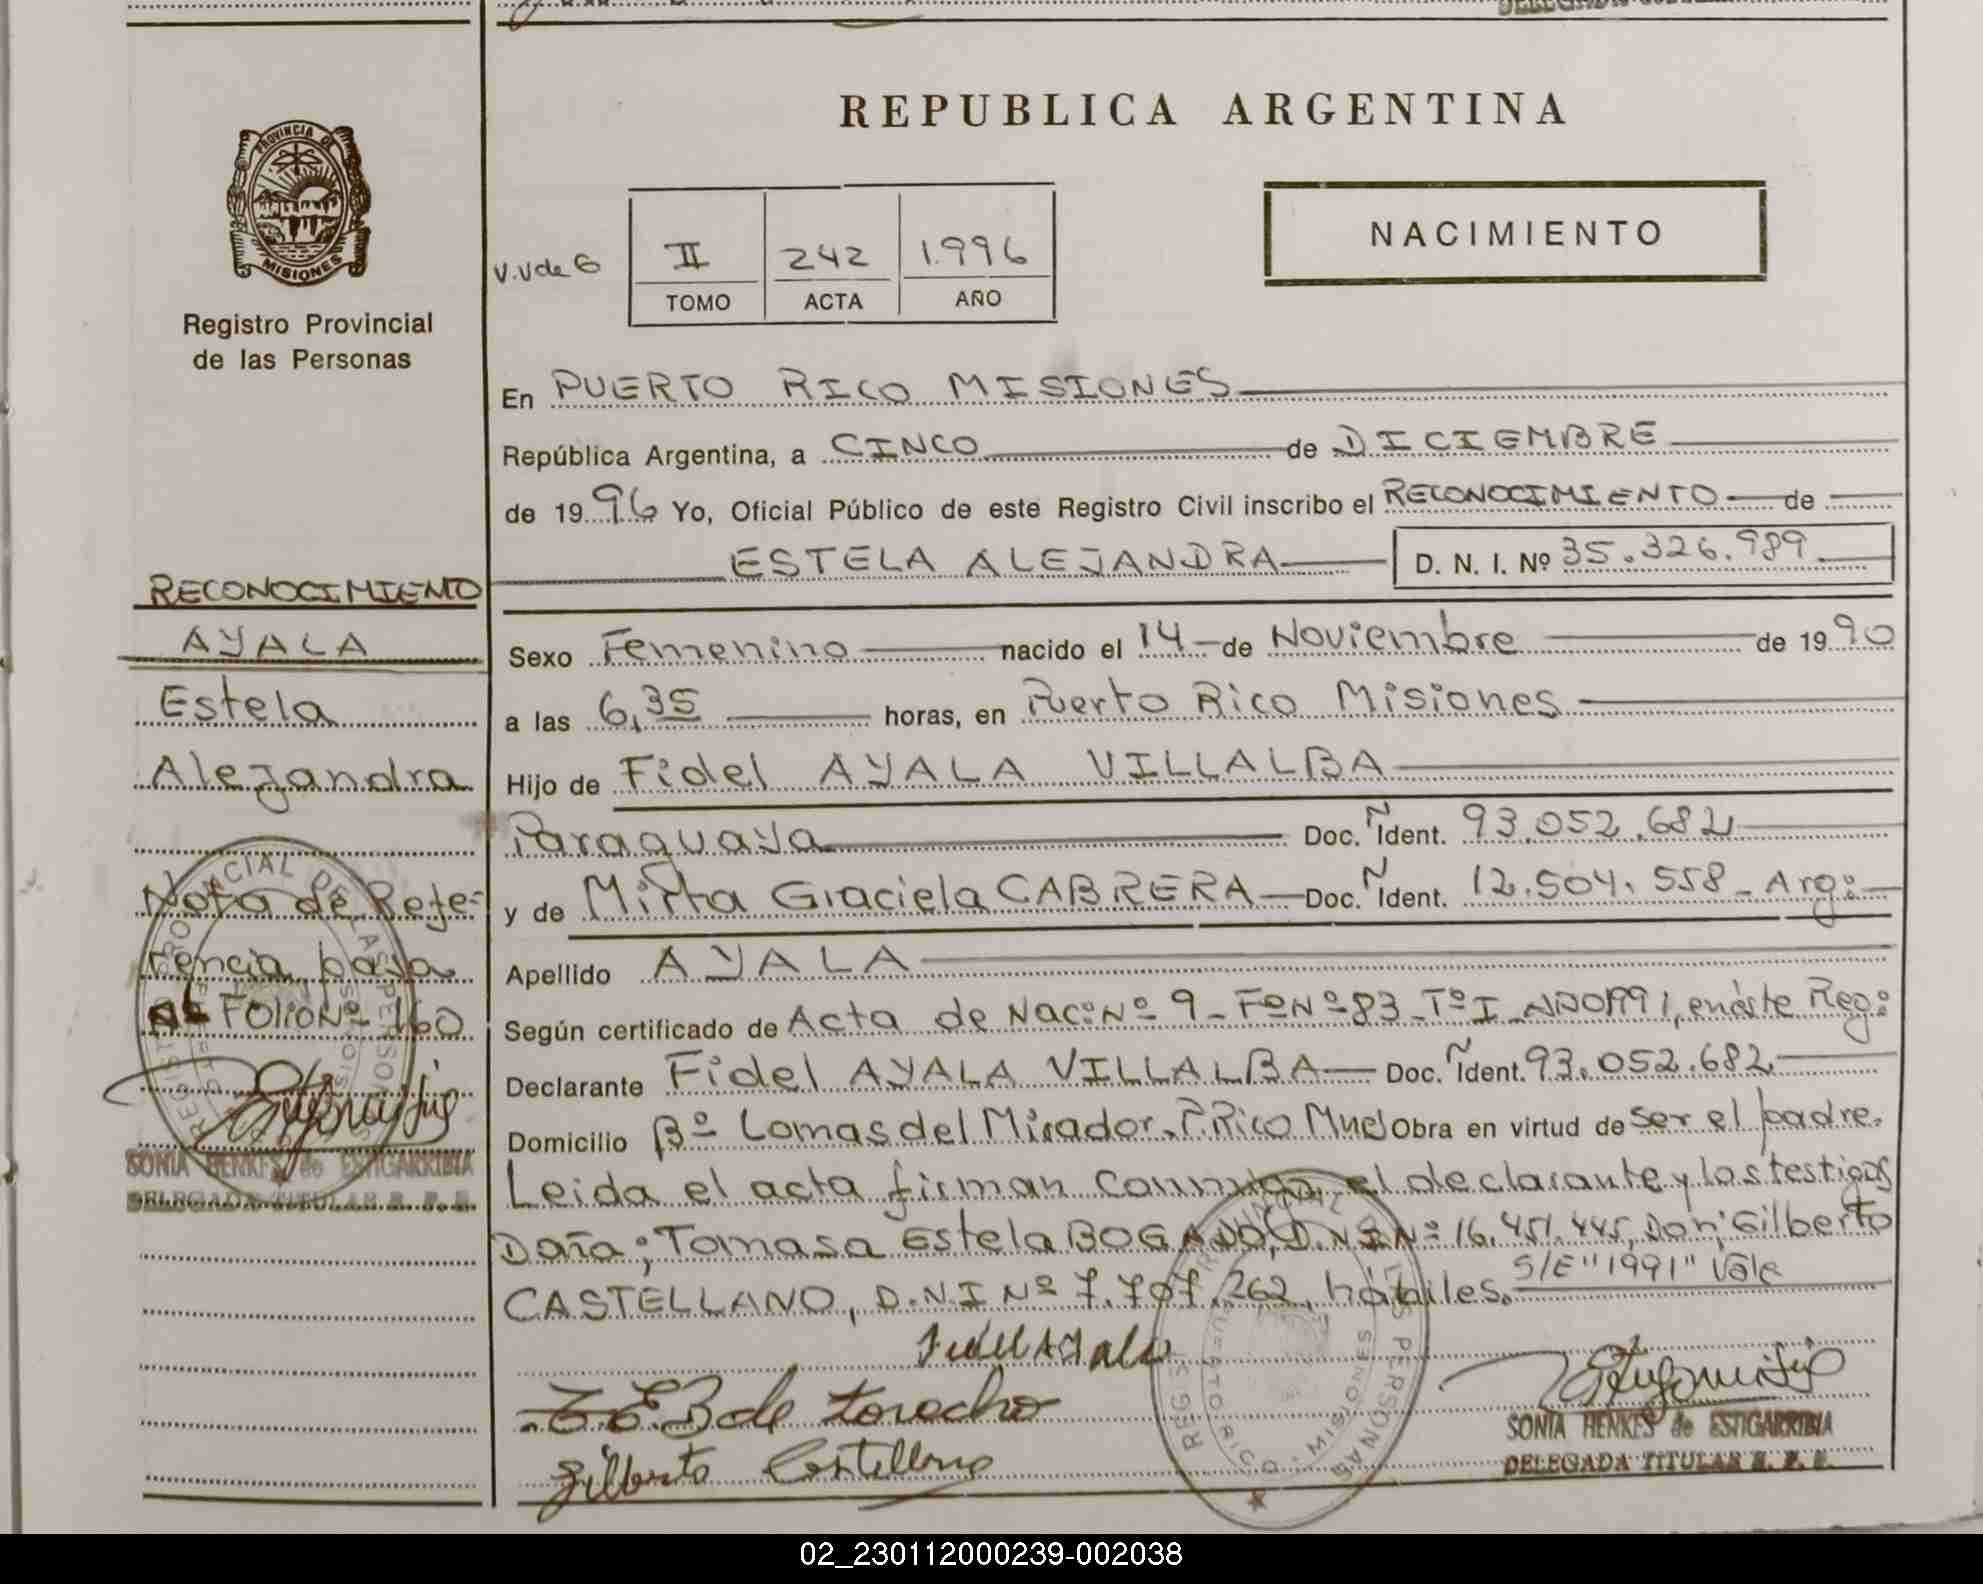 REPUBLICA ARGENTINA
PROVINCIA DE
MISIONES
Registro Provincial
de las Personas
NACIMIENTO
V.V de G
II 242 1.996
TOMO ACTA AÑO
En PUERTO RICO MISIONES
República Argentina, a CINCO de DICIEMBRE
de 19 96 Yo, Oficial Público de este Registro Civil inscribo el RECONOCIMIENTO de
ESTELA ALEJANDRA D. N. I. Nº 35.326.989
RECONOCIMIENTO
AYALA
Estela
Alejandra
Nota de Refe-
rencia pasa
al FOLIO Nº 160
SONIA HENKES de ESTIGARRIBIA
DELEGADA TITULAR R. P. P.
Sexo Femenino nacido el 14 de Noviembre de 19 90
a las 6,35 horas, en Puerto Rico Misiones
Hijo de Fidel AYALA VILLALBA
Paraguaya Doc. Ñ Ident. 93.052.682
y de Mirta Graciela CABRERA Doc. Ñ Ident. 12.504.558 - Arg:
Apellido AYALA
Según certificado de Acta de Nac: Nº 9 - Fº Nº 83 - Tº I - AÑO 1991, en éste Reg:
Declarante Fidel AYALA VILLALBA Doc. Ñ Ident. 93.052.682
Domicilio Bº Lomas del Mirador, P. Rico Mnes Obra en virtud de ser el padre.
Leida el acta firman conmigo el declarante y los testigos
Doña; Tomasa Estela BOGADO, D.N.I Nº 16.451.445, Don; Gilberto
CASTELLANO, D.N.I Nº 7.707.262, hábiles. S/E "1991" Vale
Fidel Ayala
T E B de Torecho
Gilberto Castellano
REGISTRO PROVINCIAL DE LAS PERSONAS
PUERTO RICO MISIONES
SONIA HENKES de ESTIGARRIBIA
DELEGADA TITULAR R. P. P.
02_230112000239-002038